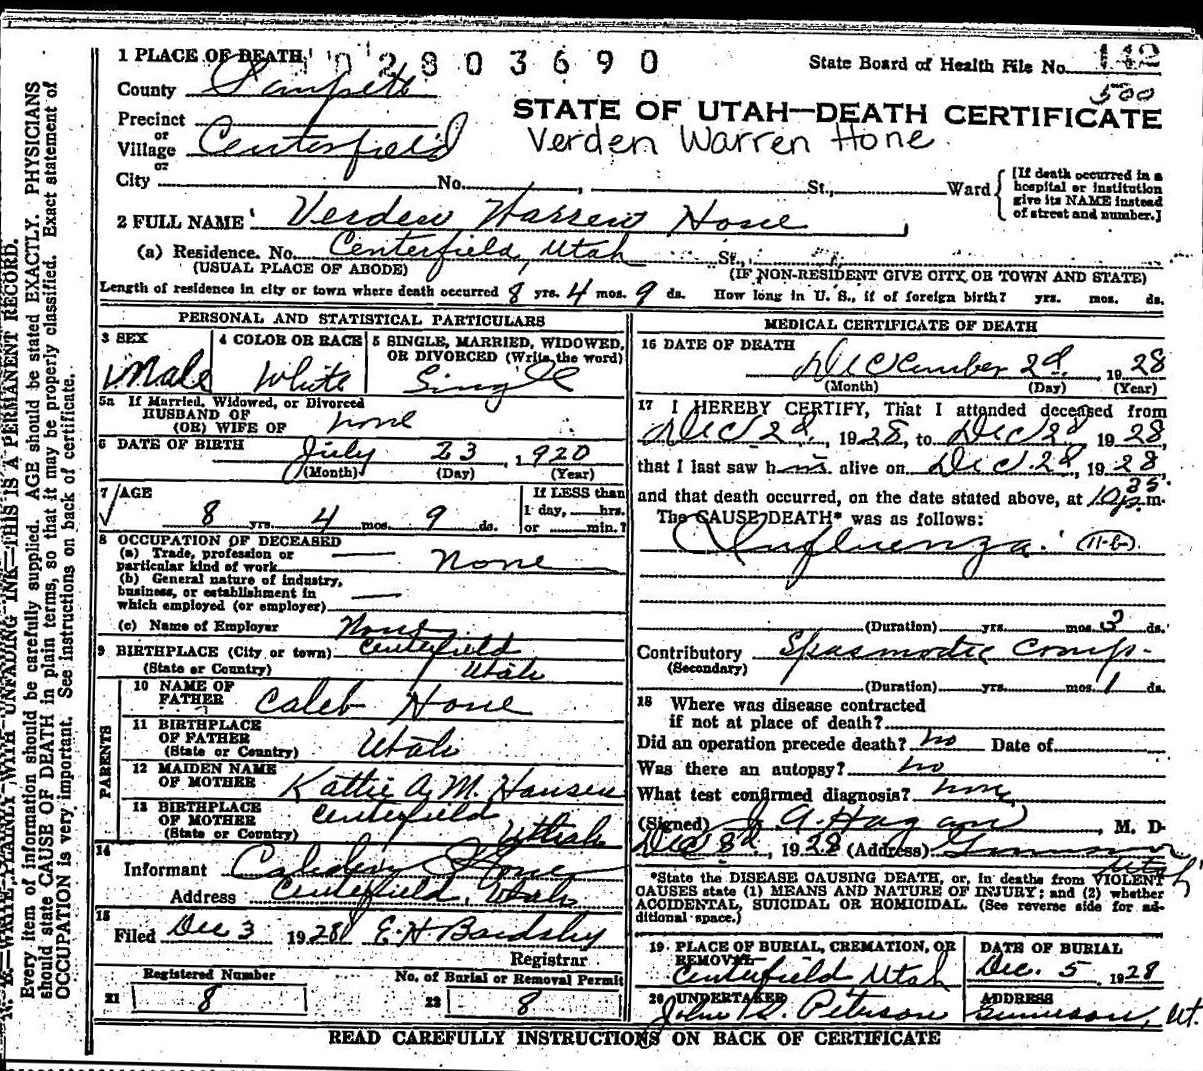 1 PLACE OF DEATH
02803690
State Board of Health File No. 112
500
County Sanpete
STATE OF UTAH—DEATH CERTIFICATE
Precinct
or
Village Centerfield
Verden Warren Hone
or
City No. , St., Ward
[If death occurred in a hospital or institution give its NAME instead of street and number.]
2 FULL NAME Verden Warren Hone
(a) Residence. No. Centerfield, Utah St.,
(USUAL PLACE OF ABODE) (IF NON-RESIDENT GIVE CITY OR TOWN AND STATE)
Length of residence in city or town where death occurred 8 yrs. 4 mos. 9 ds. How long in U. S., if of foreign birth? yrs. mos. ds.
PERSONAL AND STATISTICAL PARTICULARS
3 SEX
Male
4 COLOR OR RACE
White
5 SINGLE, MARRIED, WIDOWED, OR DIVORCED (Write the word)
Single
5a If Married, Widowed, or Divorced
HUSBAND OF
(OR) WIFE OF none
6 DATE OF BIRTH July 23, 1920
(Month) (Day) (Year)
7 AGE
8 yrs. 4 mos. 9 ds.
If LESS than
1 day, hrs.
or min.?
8 OCCUPATION OF DECEASED
(a) Trade, profession or
particular kind of work None
(b) General nature of industry,
business, or establishment in
which employed (or employer)
(c) Name of Employer None
9 BIRTHPLACE (City or town) Centerfield
(State or Country) Utah
PARENTS
10 NAME OF
FATHER Caleb Hone
11 BIRTHPLACE
OF FATHER
(State or Country) Utah
12 MAIDEN NAME
OF MOTHER Kattie A. M. Hansen
13 BIRTHPLACE
OF MOTHER Centerfield
(State or Country) Utah
14
Informant Hone
Address Centerfield, Utah
15
Filed Dec 3 1928 E. H. Bardsley
Registrar
Registered Number
21 8
No. of Burial or Removal Permit
22 8
MEDICAL CERTIFICATE OF DEATH
16 DATE OF DEATH
December 2d, 1928
(Month) (Day) (Year)
17 I HEREBY CERTIFY, That I attended deceased from
Dec 2d, 1928, to Dec 2d 1928,
that I last saw him alive on Dec. 2d, 1928,
and that death occurred, on the date stated above, at 10 35 p.m.
The CAUSE DEATH* was as follows:
Influenza. 11-b
(Duration) yrs. mos. 3 ds.
Contributory Spasmodic Croup.
(Secondary)
(Duration) yrs. mos. 1 ds.
18 Where was disease contracted
if not at place of death?
Did an operation precede death? no Date of
Was there an autopsy? no
What test confirmed diagnosis? none
(Signed) J. A. Hagan, M. D.
Dec 8d, 1928 (Address) Gunnison
Utah
*State the DISEASE CAUSING DEATH, or, in deaths from VIOLENT
CAUSES state (1) MEANS AND NATURE OF INJURY; and (2) whether
ACCIDENTAL, SUICIDAL OR HOMICIDAL. (See reverse side for ad-
ditional space.)
19 PLACE OF BURIAL, CREMATION, OR
REMOVAL
Centerfield Utah
DATE OF BURIAL
Dec. 5, 1928
20 UNDERTAKER
Peterson
ADDRESS
Gunnison, Ut.
READ CAREFULLY INSTRUCTIONS ON BACK OF CERTIFICATE
N. B.—WRITE PLAINLY WITH UNFADING INK—THIS IS A PERMANENT RECORD.
Every item of information should be carefully supplied. AGE should be stated EXACTLY. PHYSICIANS
should state CAUSE OF DEATH in plain terms, so that it may be properly classified. Exact statement of
OCCUPATION is very important. See instructions on back of certificate.